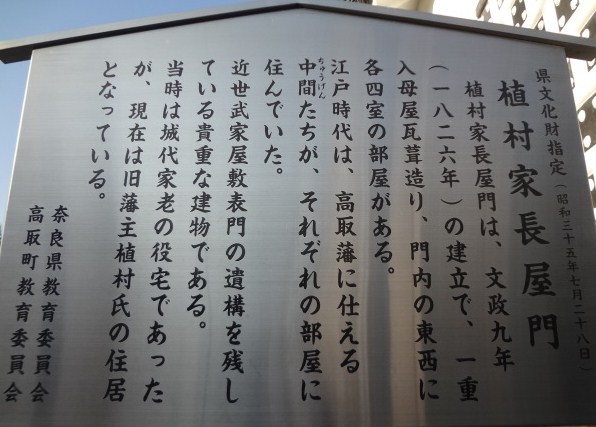 県文化財指定（昭和三十五年七月二十八日）
植村家長屋門
植村家長屋門は、文政九年
（一八二六年）の建立で、一重
入母屋瓦葺造り、門内の東西に
各四室の部屋がある。
江戸時代は、高取藩に仕える
ちゅうげん
中間たちが、それぞれの部屋に
住んでいた。
近世武家屋敷表門の遺構を残し
ている貴重な建物である。
当時は城代家老の役宅であった
が、現在は旧藩主植村氏の住居
となっている。
奈良県教育委員会
高取町教育委員会